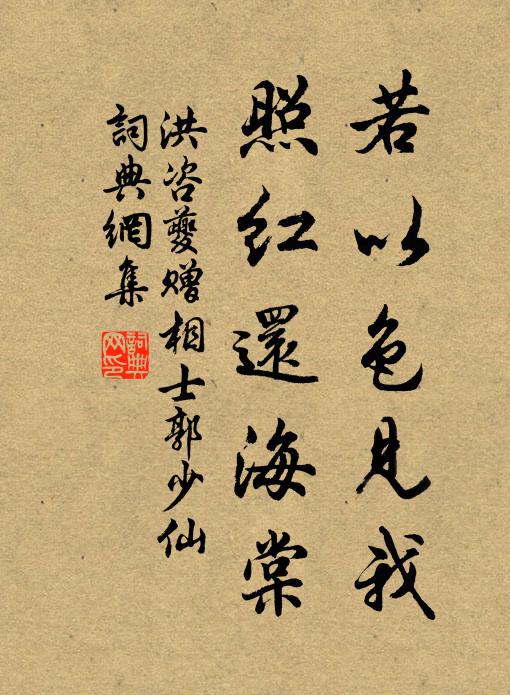 若以色見我
照紅還海棠
洪咨夔贈相士郭少仙
詞典網集
詞典
网印